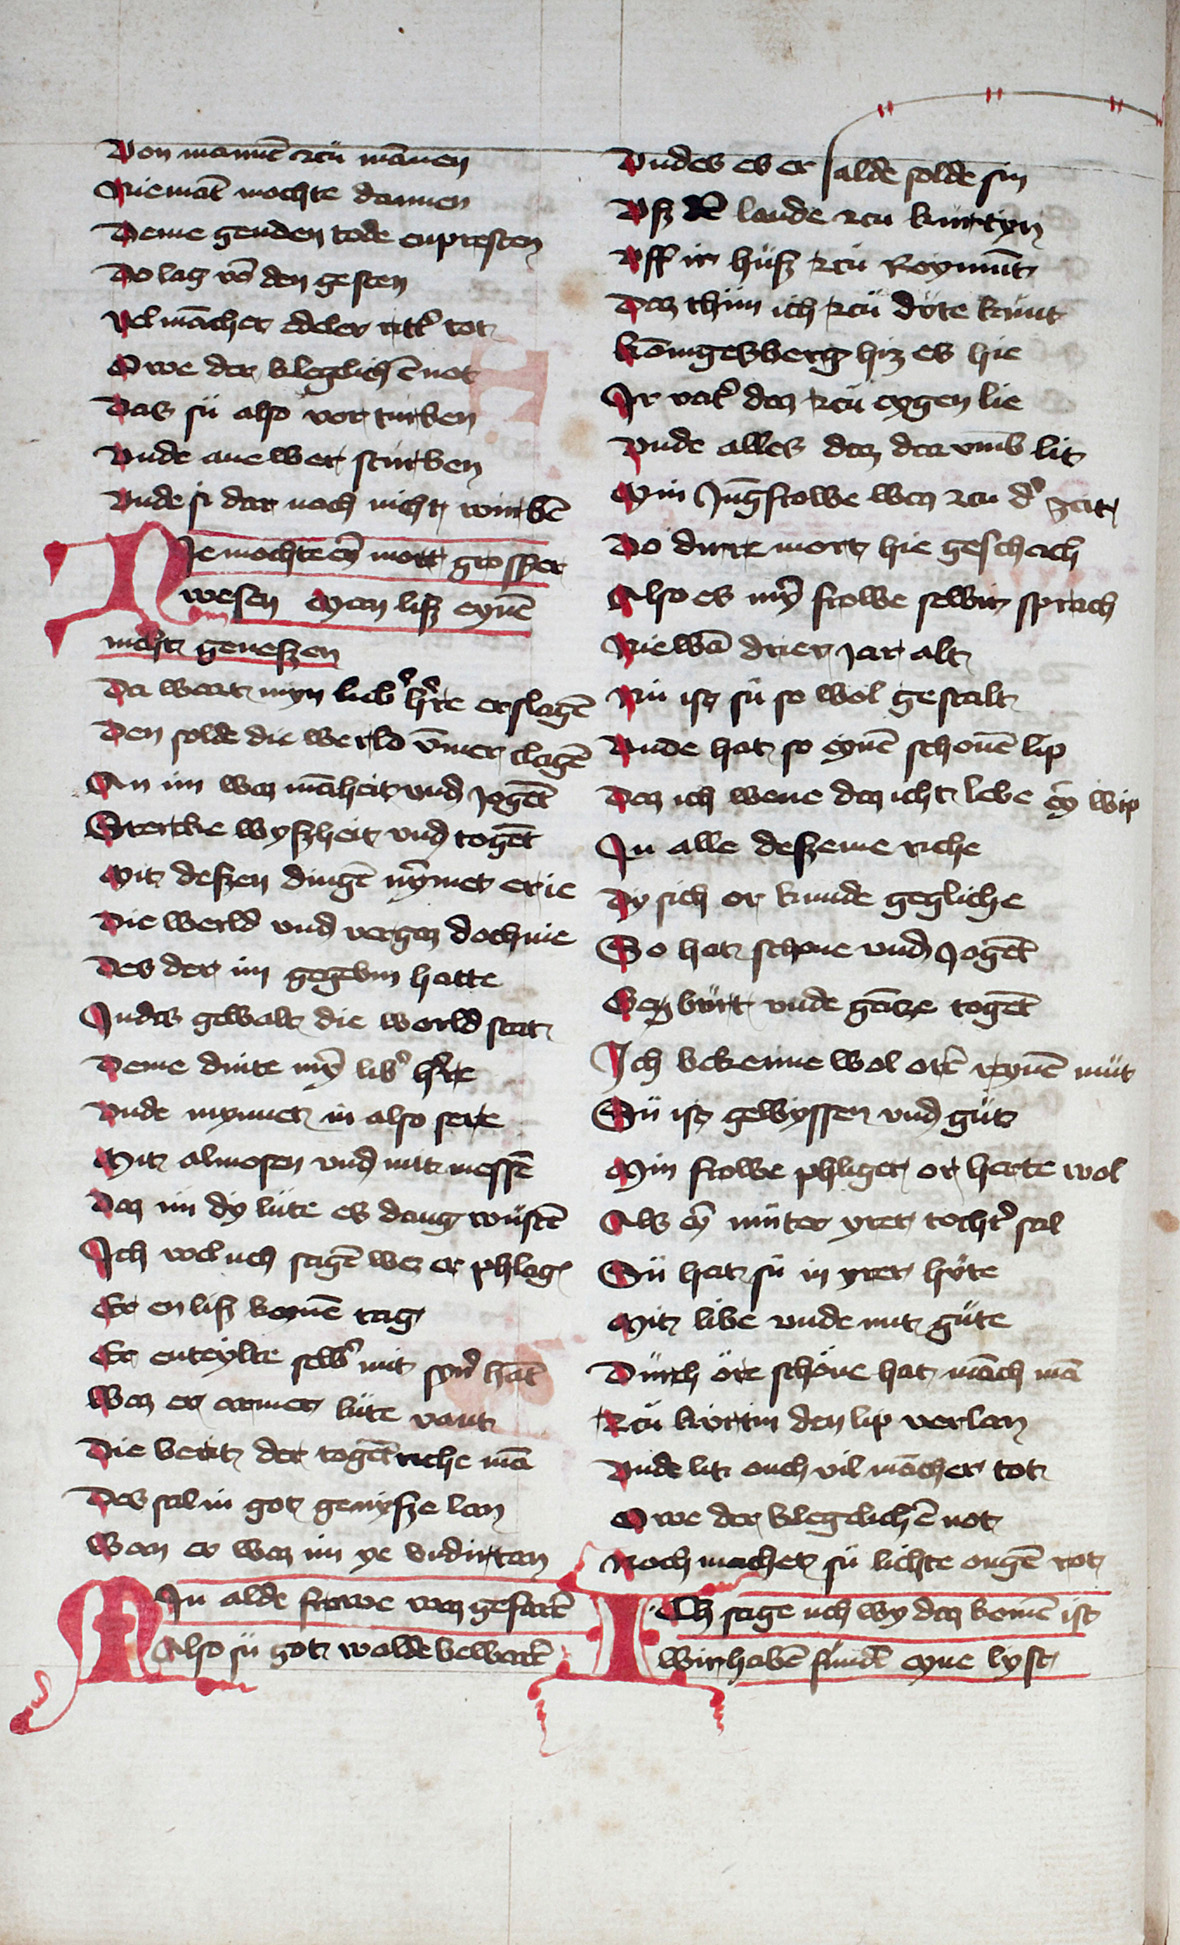 Von mannē zcu māнen
Niemāt mochte dannen
Deme genden tode enpresten
Do lag vō den gesten
vel mācher edeler rittˀ tot
Owe der kleglichē not
Das sü also vorturben
Vnde ane wer sturben
Vnde si dar noch nicht wurbē
Nie mochte eȳ mort grosser
wesen Man lisz eynē
nicht geneszen
Da wart myn liebˀ hˀre erslagē
Den solde die werld ỹmer clagē
An im waz māheit vnd jogēt
Stercke wyszheit vnd togēt
Mit deszen dingē mȳnet er ie
Die werld vnd vergaz doch nie
Des der im gegebin hatte
In des gewalt die world stat
Deme dinte mȳ libˀ hˀre
Vnde mynnet in also sere
Mit almosen vnd mit messē
Daz im dy lüte es dang wustē
Ich wel uch sagē wez er phlag
Er en lisz keynē tag
Er enteylte selbˀ mit synˀ hāt
Waz er armer lüte vant
Die bezit der togētriche mā
Des sal in got genysze lan
Wan er waz im ye vndirtan
Min alde frowe waz gefarē
Also sü got walde bewarē
Vndes es er walde solde sin
Vsz dē lande zcu kurtyn
Vff ir husz zcü Roymūt
Daz thün ich zcü dyte kunt
Kōnigesberg hiz es hie
Ir vatˀ daz zcü eygen lie
Vnde alles daz daa vmb lit
Myn Jūgfrowe waz zcu dˀ zcit
Do dirre mort hie geschach
Also es mȳ frowe selbir sprach
Nie wā drier jar alt
Nü ist sü so wol gestalt
Vnde hat so eynē schonē lip
Daz ich wene daz icht lebe eȳ wip
In alle deszeme riche
Dy sich or kunde gegliche
So hat schone vnd Jogēt
Gezburt vnde gancze togēt
Ich bekenne wol orē reynē mut
Sü ist gewyssen vnd güt
Min frowe phliget or harte wol
Als eȳ müter yrer tochtˀ sal
Sü hat sü in yrer hute
Mit libe vnde mit güte
Durch öre schöne hat māch mā
Zcü kurtin den lip verlan
Vnde lit ouch vil mācher tot
Owe der klegelichē not
Noch machet sü lichte ougē rot
Ich sage uch wy daz komē ist
Wir habē fundē eyne lyst